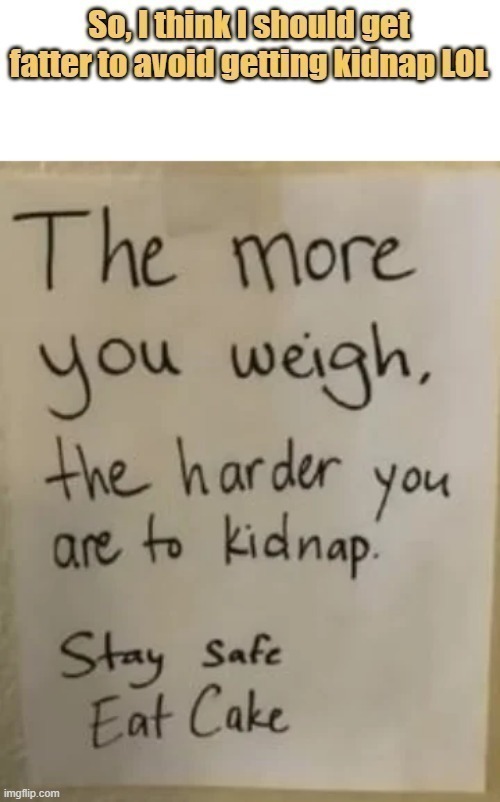 So, I think I should get
fatter to avoid getting kidnap LOL
The more
you weigh,
the harder you
are to kidnap.
Stay safe
Eat Cake
imgflip.com